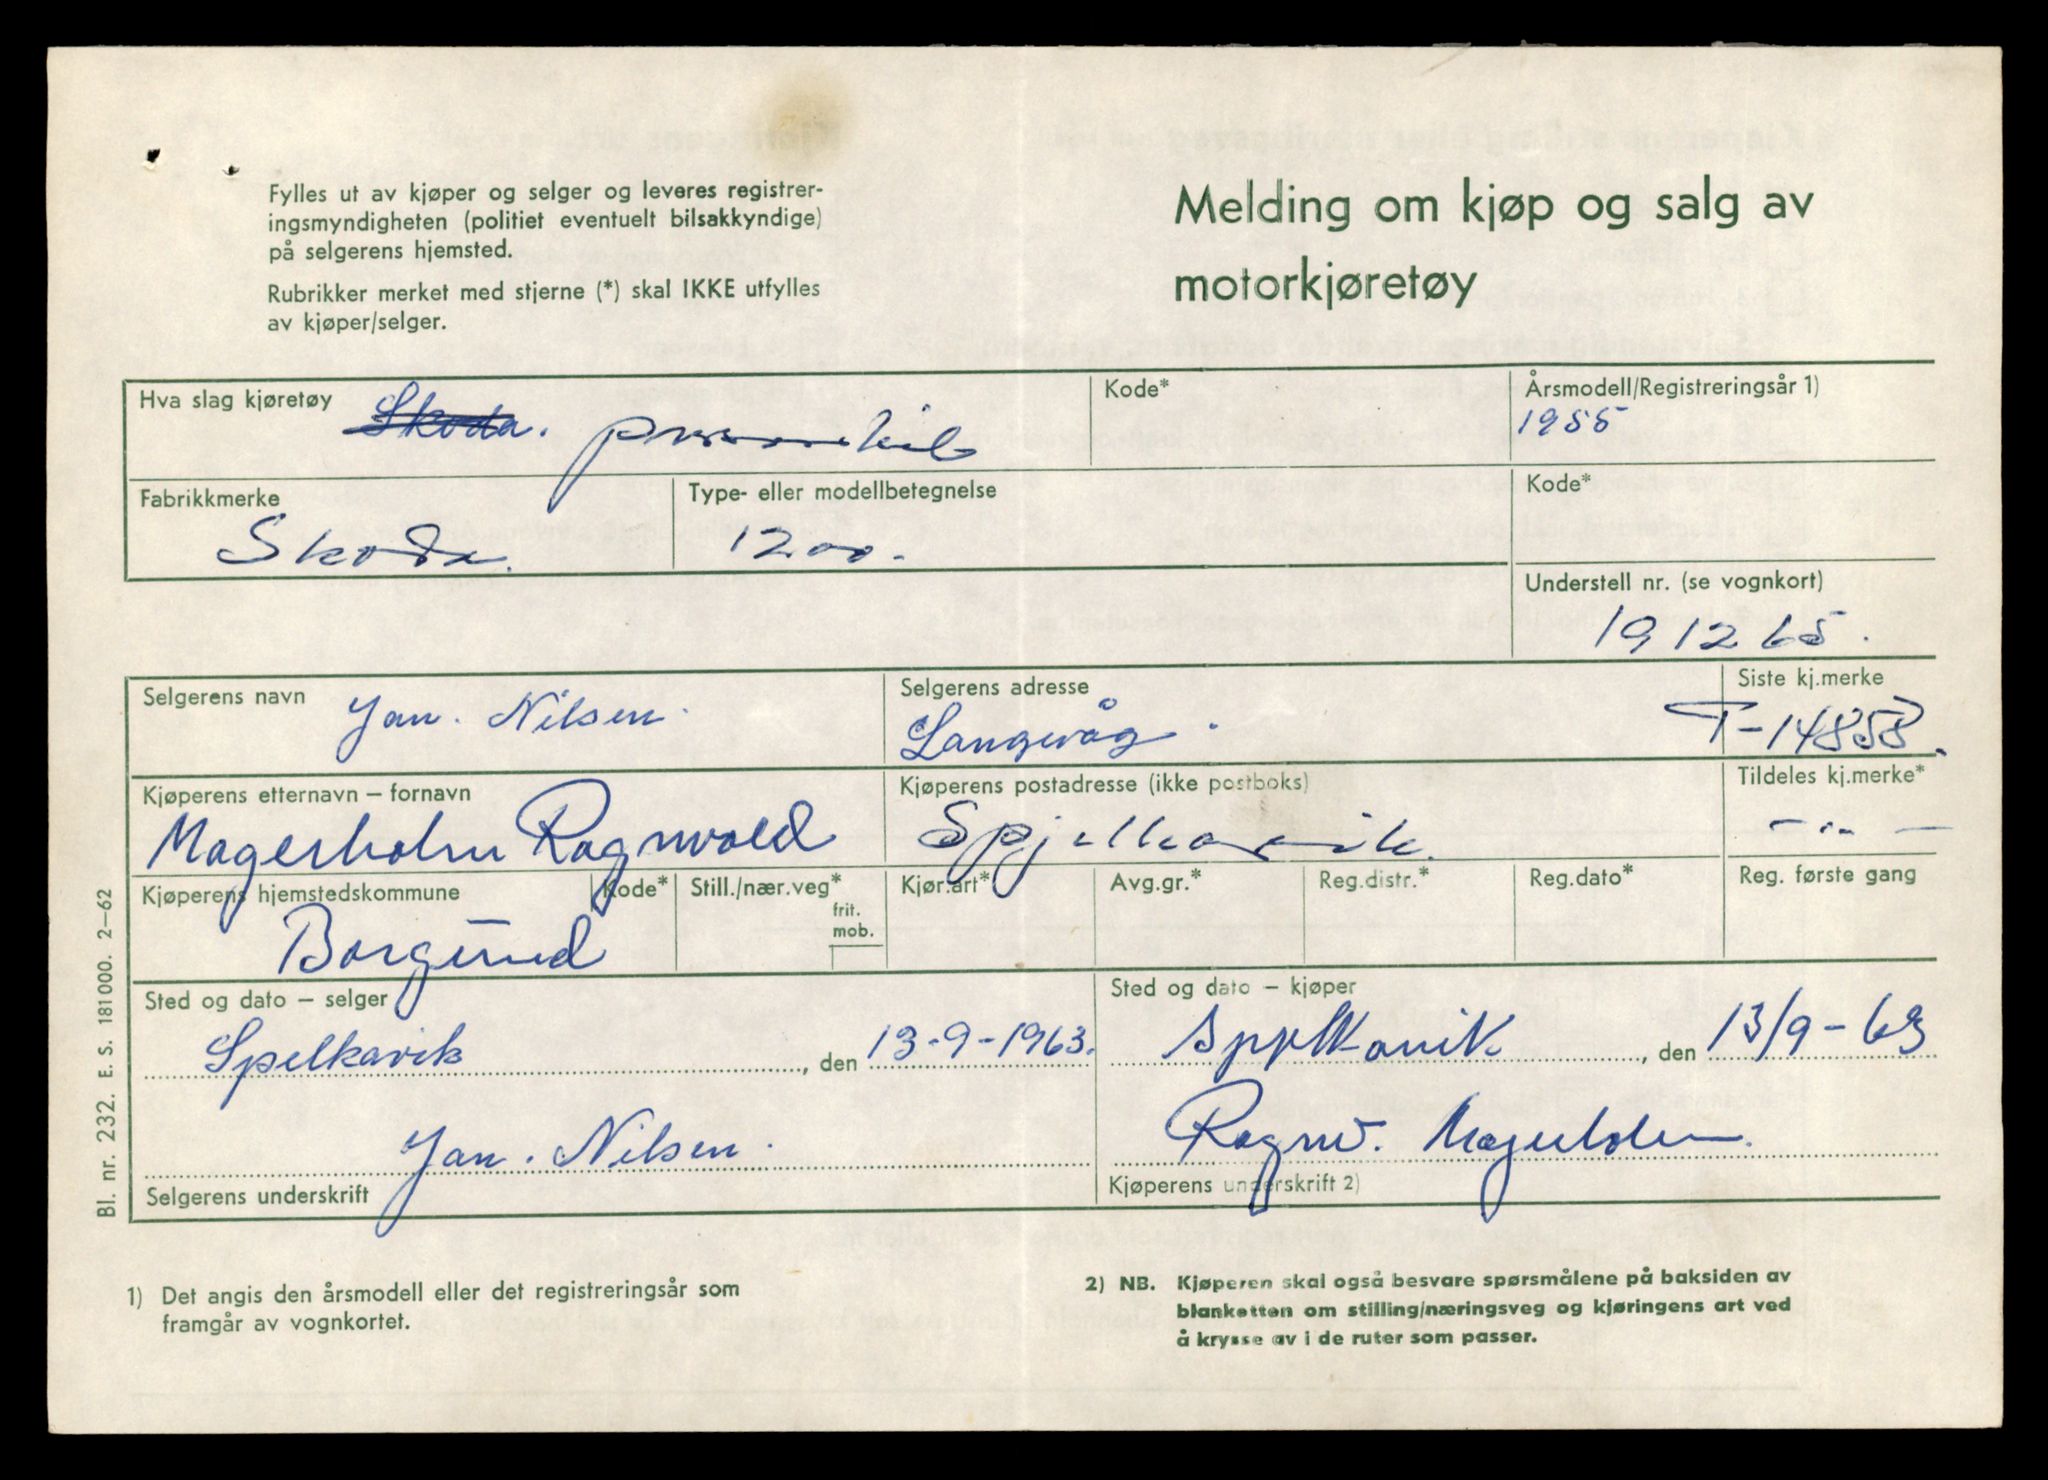 Fylles ut av kjøper og selger og leveres registrer-
ingsmyndigheten (politiet eventuelt bilsakkyndige)
på selgerens hjemsted.
Rubrikker merket med stjerne (*) skal IKKE utfylles
av kjøper/selger.
Melding om kjøp og salg av
motorkjøretøy
Hva slag kjøretøy Skoda. personbil
Kode*
Årsmodell/Registreringsår 1)
1955
Fabrikkmerke
Skoda.
Type- eller modellbetegnelse
1200.
Kode*
Understell nr. (se vognkort)
191265.
Selgerens navn Jan. Nilsen.
Selgerens adresse
Langevåg.
Siste kj.merke
T-14858.
Kjøperens etternavn – fornavn
Magerholm Ragnvald
Kjøperens postadresse (ikke postboks)
Spjelkavik.
Tildeles kj.merke*
— „ —
Kjøperens hjemstedskommune
Borgund
Kode*
Still./nær.veg*
frit.
mob.
Kjør.art*
Avg.gr.*
Reg.distr.*
Reg.dato*
Reg. første gang
Sted og dato – selger
Spelkavik, den 13-9-1963.
Sted og dato – kjøper
den 13/9-63
Jan. Nilsen.
Selgerens underskrift
Ragnv. Magerholm.
Kjøperens underskrift 2)
Bl. nr. 232. E. S. 181000. 2–62
1) Det angis den årsmodell eller det registreringsår som
framgår av vognkortet.
2) NB. Kjøperen skal også besvare spørsmålene på baksiden av
blanketten om stilling/næringsveg og kjøringens art ved
å krysse av i de ruter som passer.